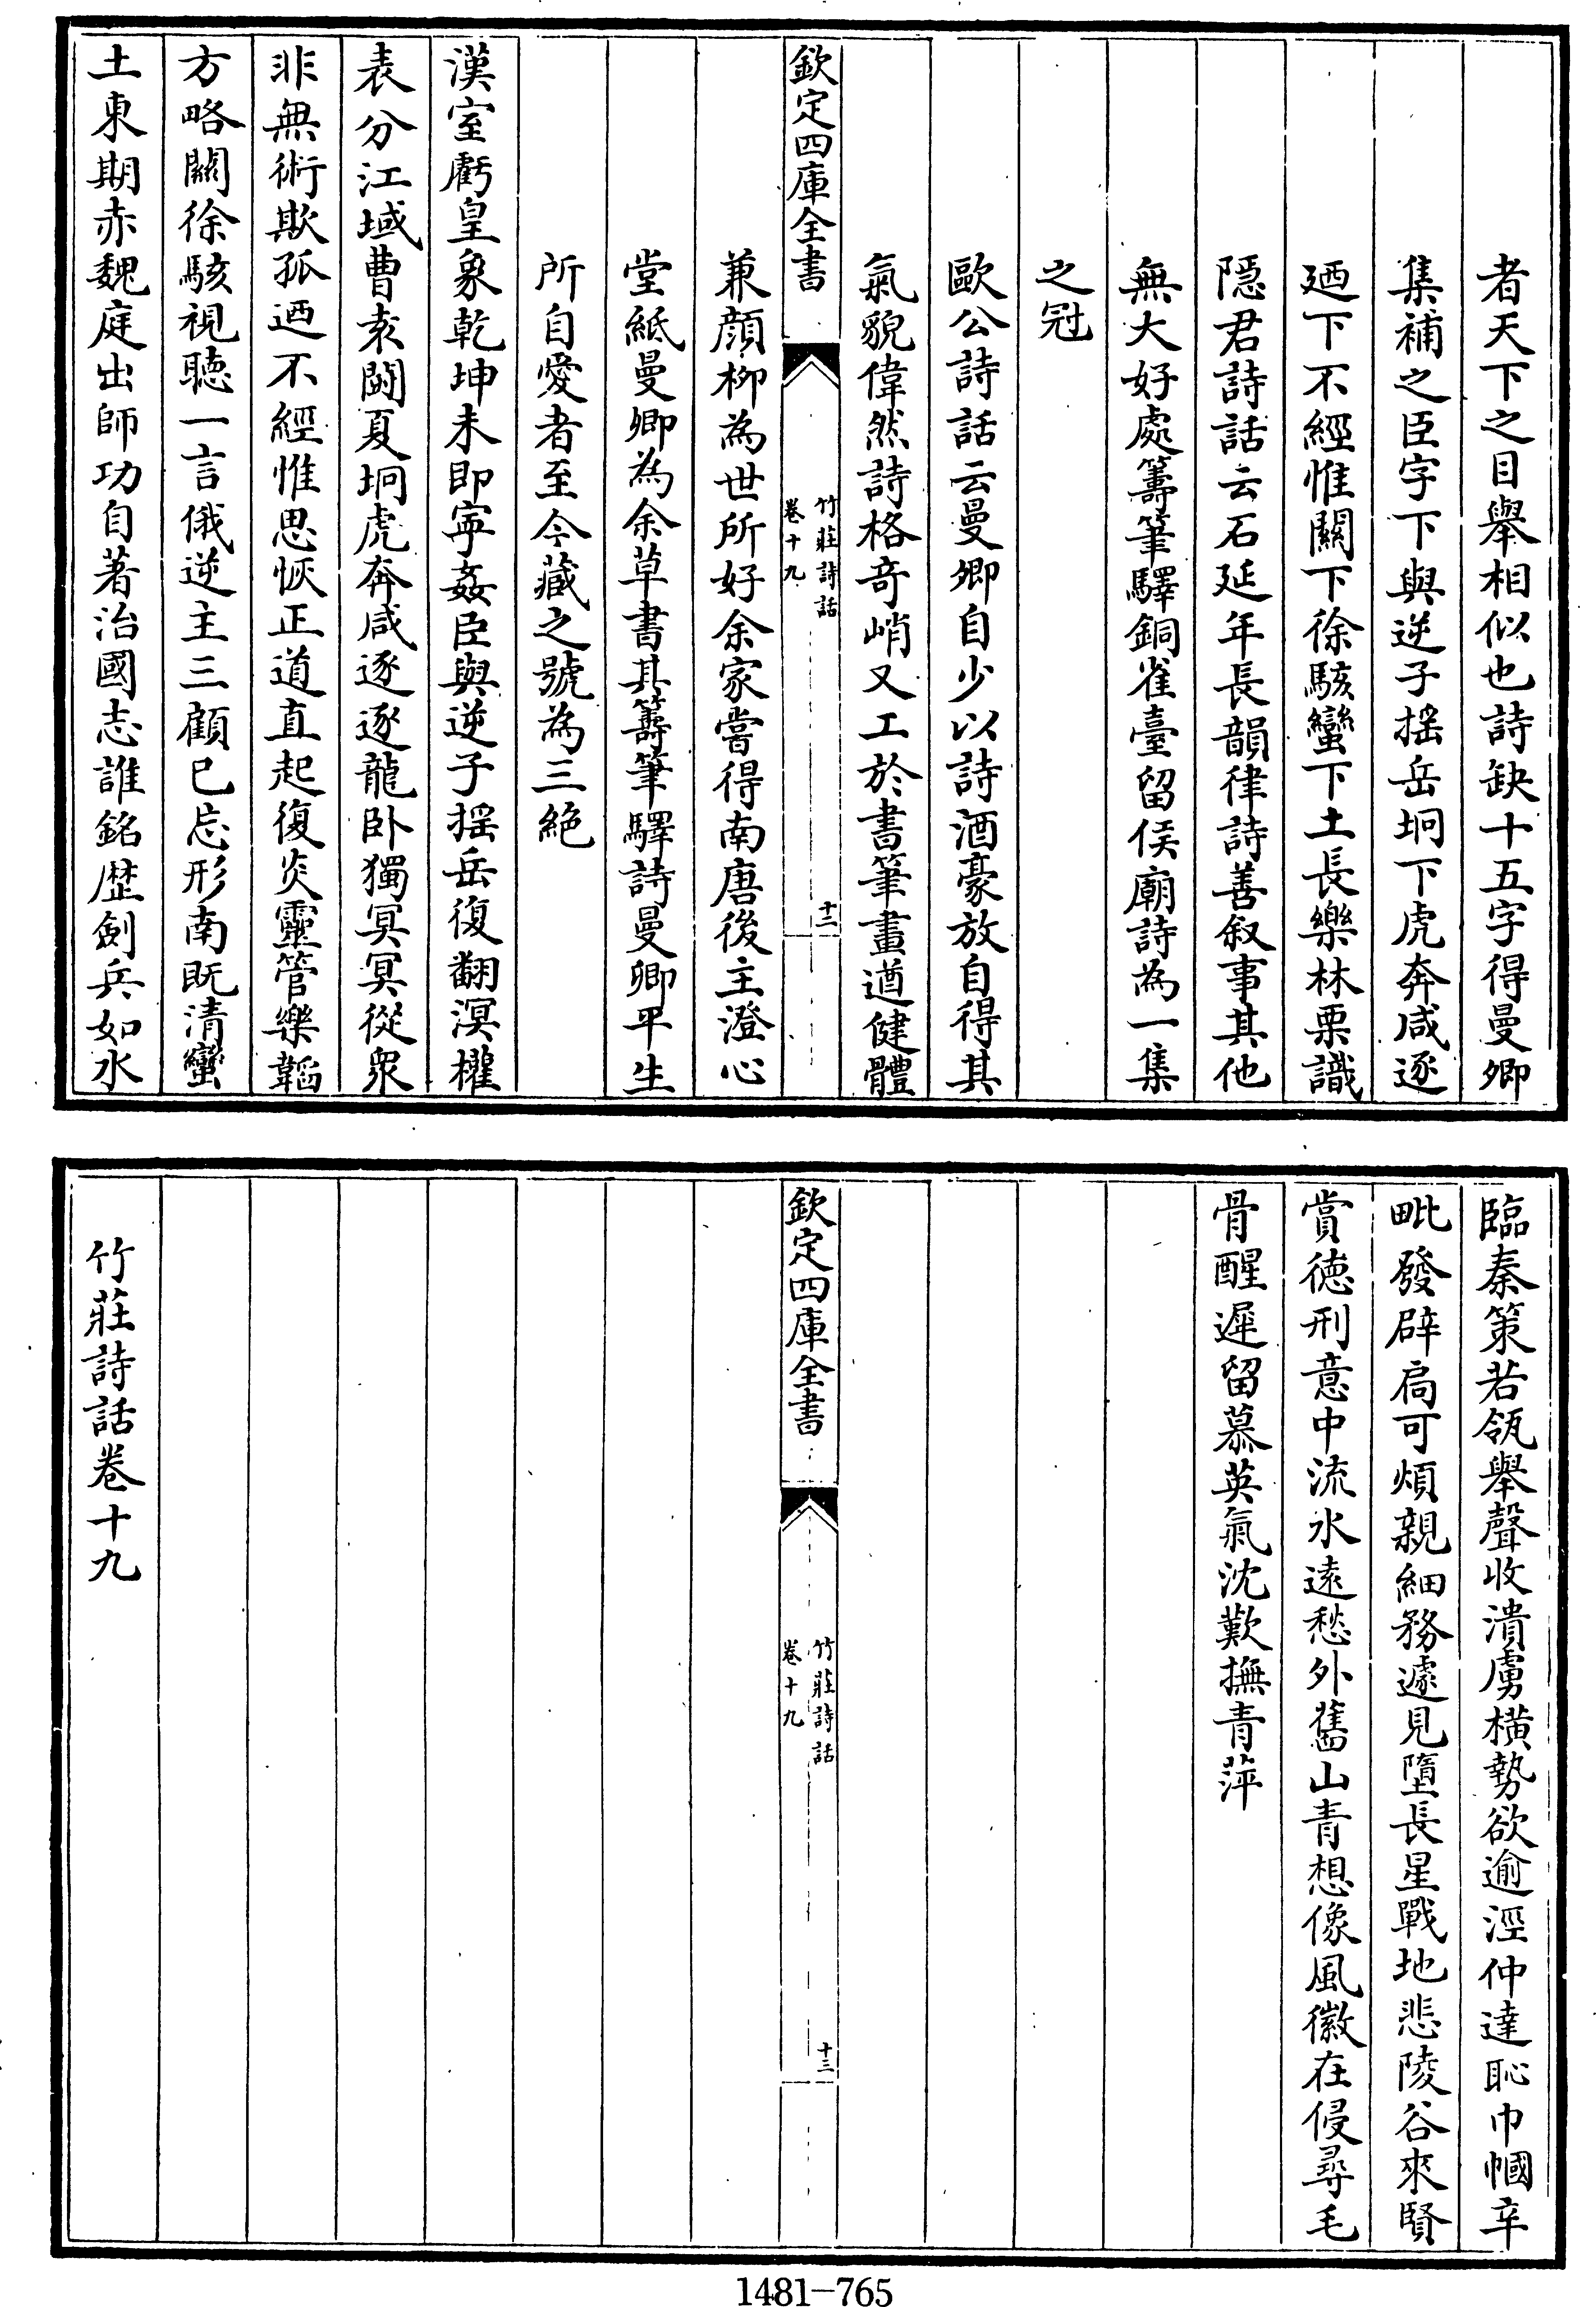 者天下之目舉相似也詩缺十五字得曼卿
集補之臣字下與逆子搖岳坰下虎奔咸逐
迺下不經惟關下徐駭蠻下土長樂林栗識
隠君詩話云石延年長韻律詩善叙事其他
無大好處籌筆驛銅雀臺留侯廟詩為一集
之冠
歐公詩話云曼卿自少以詩酒豪放自得其
氣貌偉然詩格竒峭又工於書筆畫遒健體
欽定四庫全書
竹莊詩話
卷十九
十二
兼顔柳為世所好余家嘗得南唐後主澄心
堂紙曼卿為余草書其籌筆驛詩曼卿平生
所自愛者至今藏之號為三絶
漢室虧皇象乾坤未即寧姦臣與逆子搖岳復翻溟權
表分江域曹袁鬭夏坰虎奔咸逐逐龍卧獨冥冥從衆
非無術欺孤迺不經惟思恢正道直起復炎靈管樂韜
方略關徐駭視聽一言俄逆主三顧已忘形南既清蠻
土東期赤魏庭出師功自著治國志誰銘歴劍兵如水
臨秦策若瓴舉聲收潰虜橫勢欲逾涇仲達恥巾幗辛
毗發辟扃可煩親細務遽見墮長星戰地悲陵谷來賢
賞徳刑意中流水遠愁外舊山青想像風徽在侵尋毛
骨醒遲留慕英氣沈歎撫青萍
欽定四庫全書
竹莊詩話
卷十九
十三
竹莊詩話卷十九
1481-765